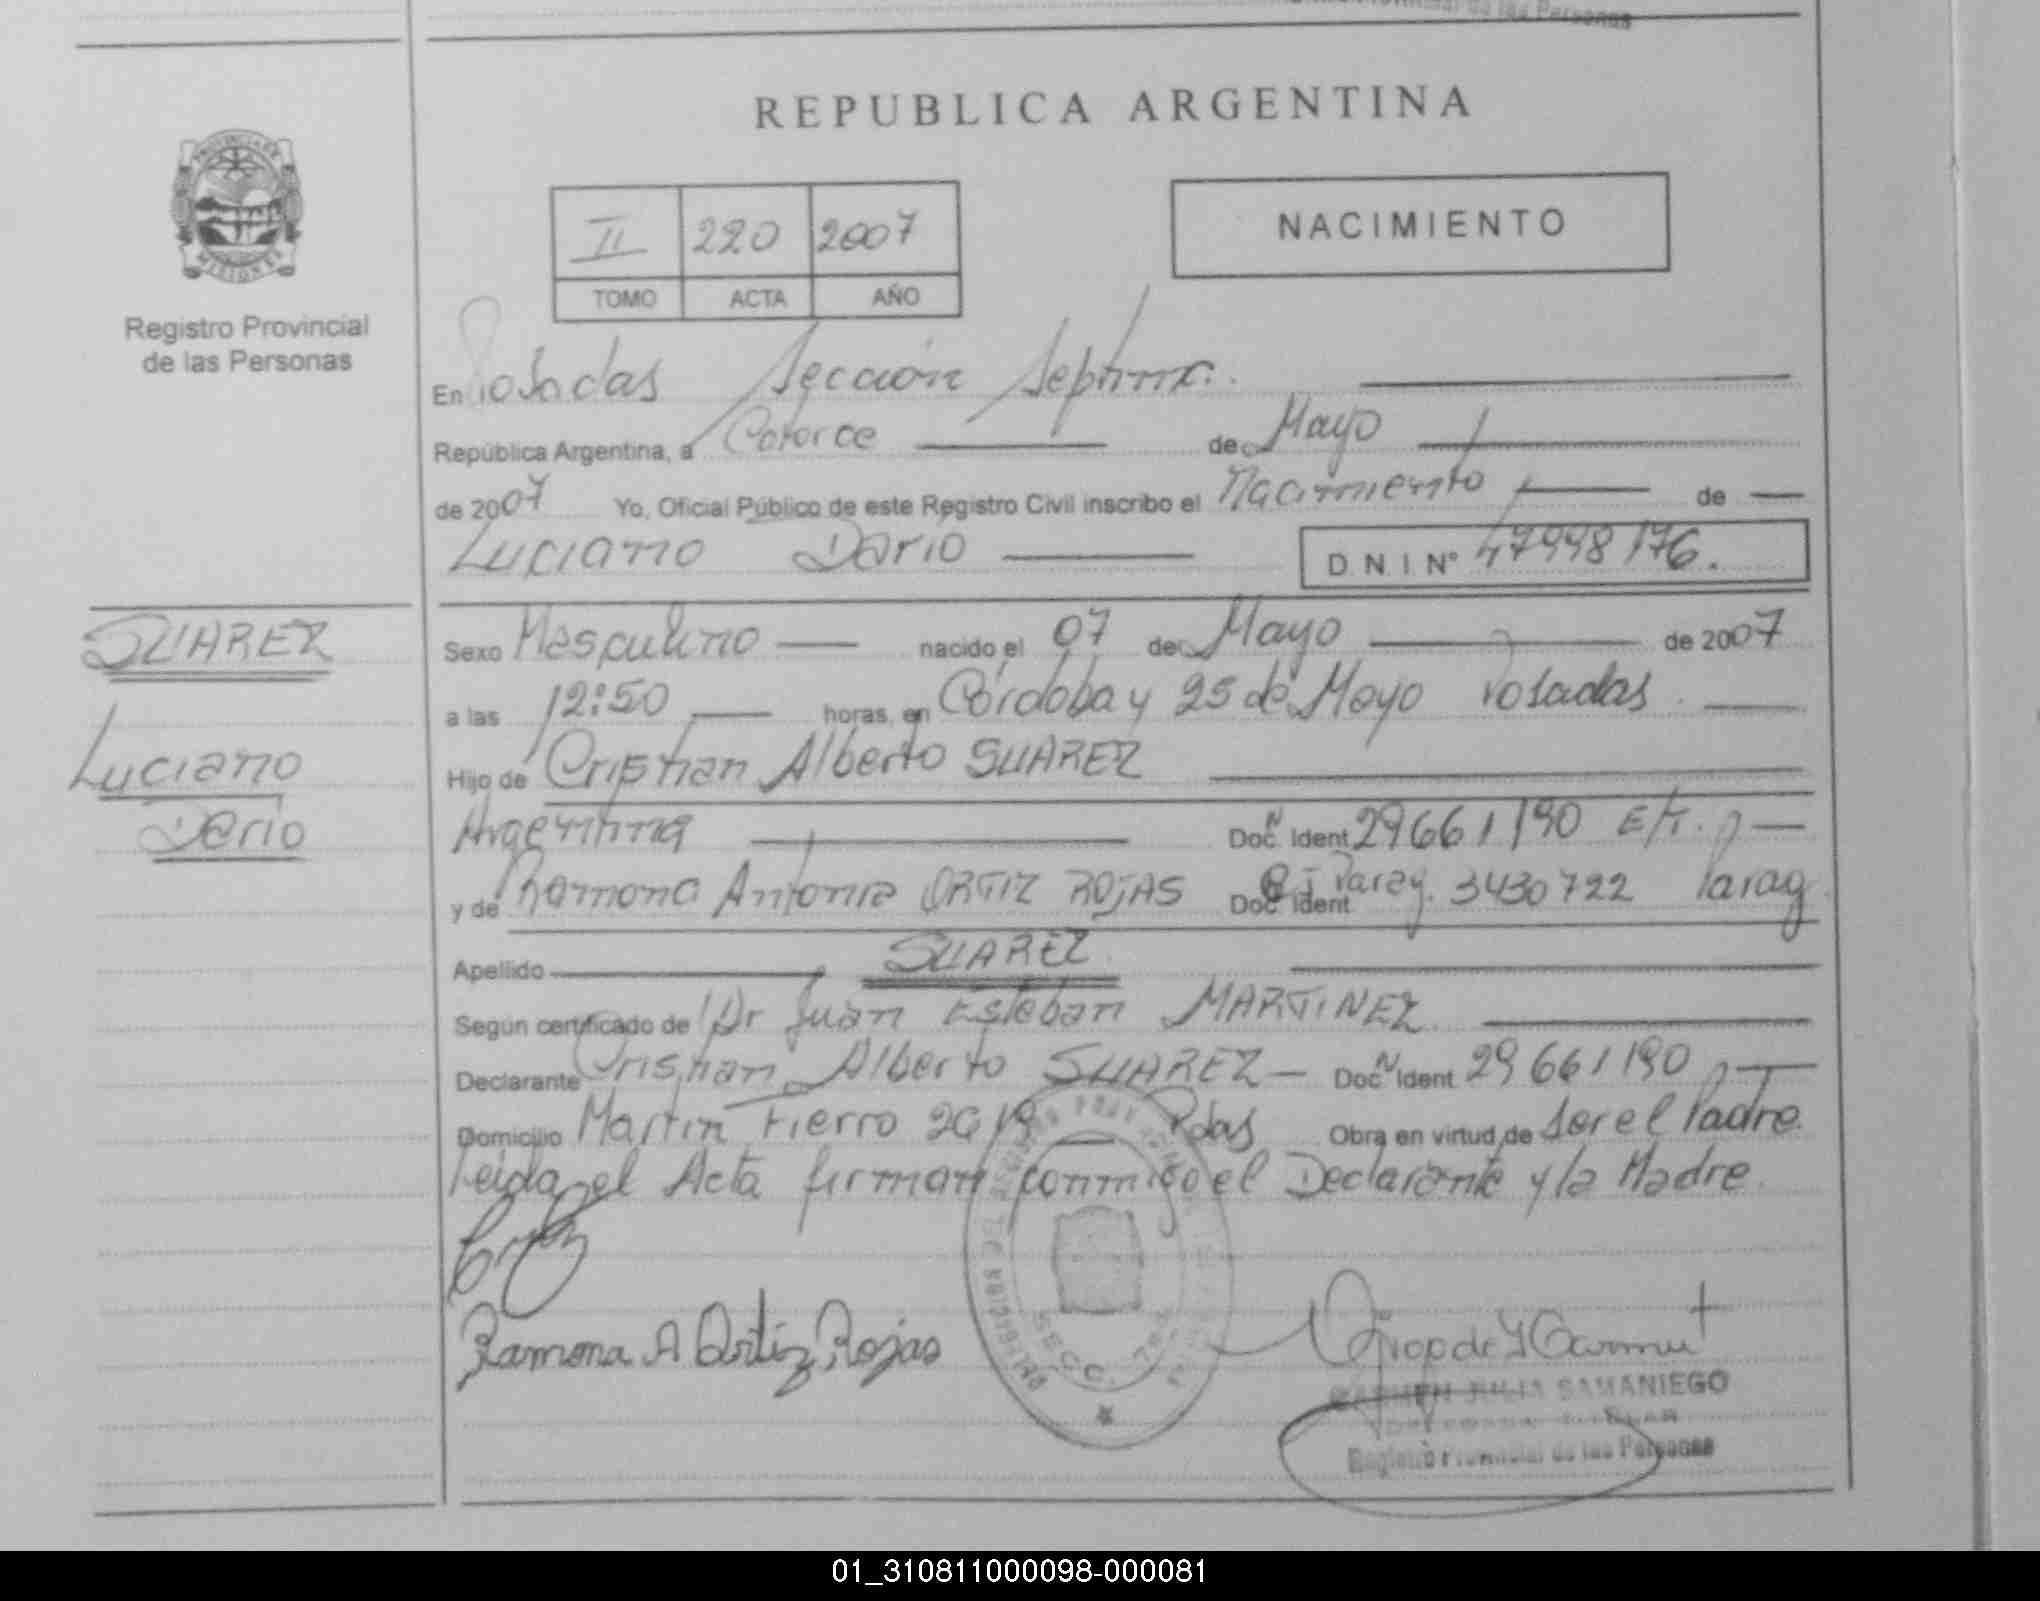 de las Personas
REPUBLICA ARGENTINA
PROVINCIA DE
MISIONES
Registro Provincial
de las Personas
II 220 2007
TOMO ACTA AÑO
NACIMIENTO
En Posadas Sección Septima.
República Argentina, a Catorce de Mayo
de 2007 Yo, Oficial Público de este Registro Civil inscribo el Nacimiento de
Luciano Dario D.N.I Nº 47998176.
SUAREZ
Luciano
Dario
Sexo Masculino nacido el 07 de Mayo de 2007
a las 12:50 horas, en Córdoba y 25 de Mayo Posadas
Hijo de Cristian Alberto SUAREZ
Argentina Doc. Ident 29661190
y de Ramona Antonia ORTIZ ROJAS Doc Ident Parag. 3430722 Parag
Apellido SUAREZ
Según certificado de Dr Juan Esteban MARTINEZ
Declarante Cristian Alberto SUAREZ Doc Ident 29661190
Domicilio Martin Fierro Pdas Obra en virtud de ser el Padre.
Leida el Acta firman conmigo el Declarante y la Madre.
Ramona A Ortiz Rojas
SECC.
CARMEN JULIA SAMANIEGO
Registro Provincial de las Personas
01_310811000098-000081